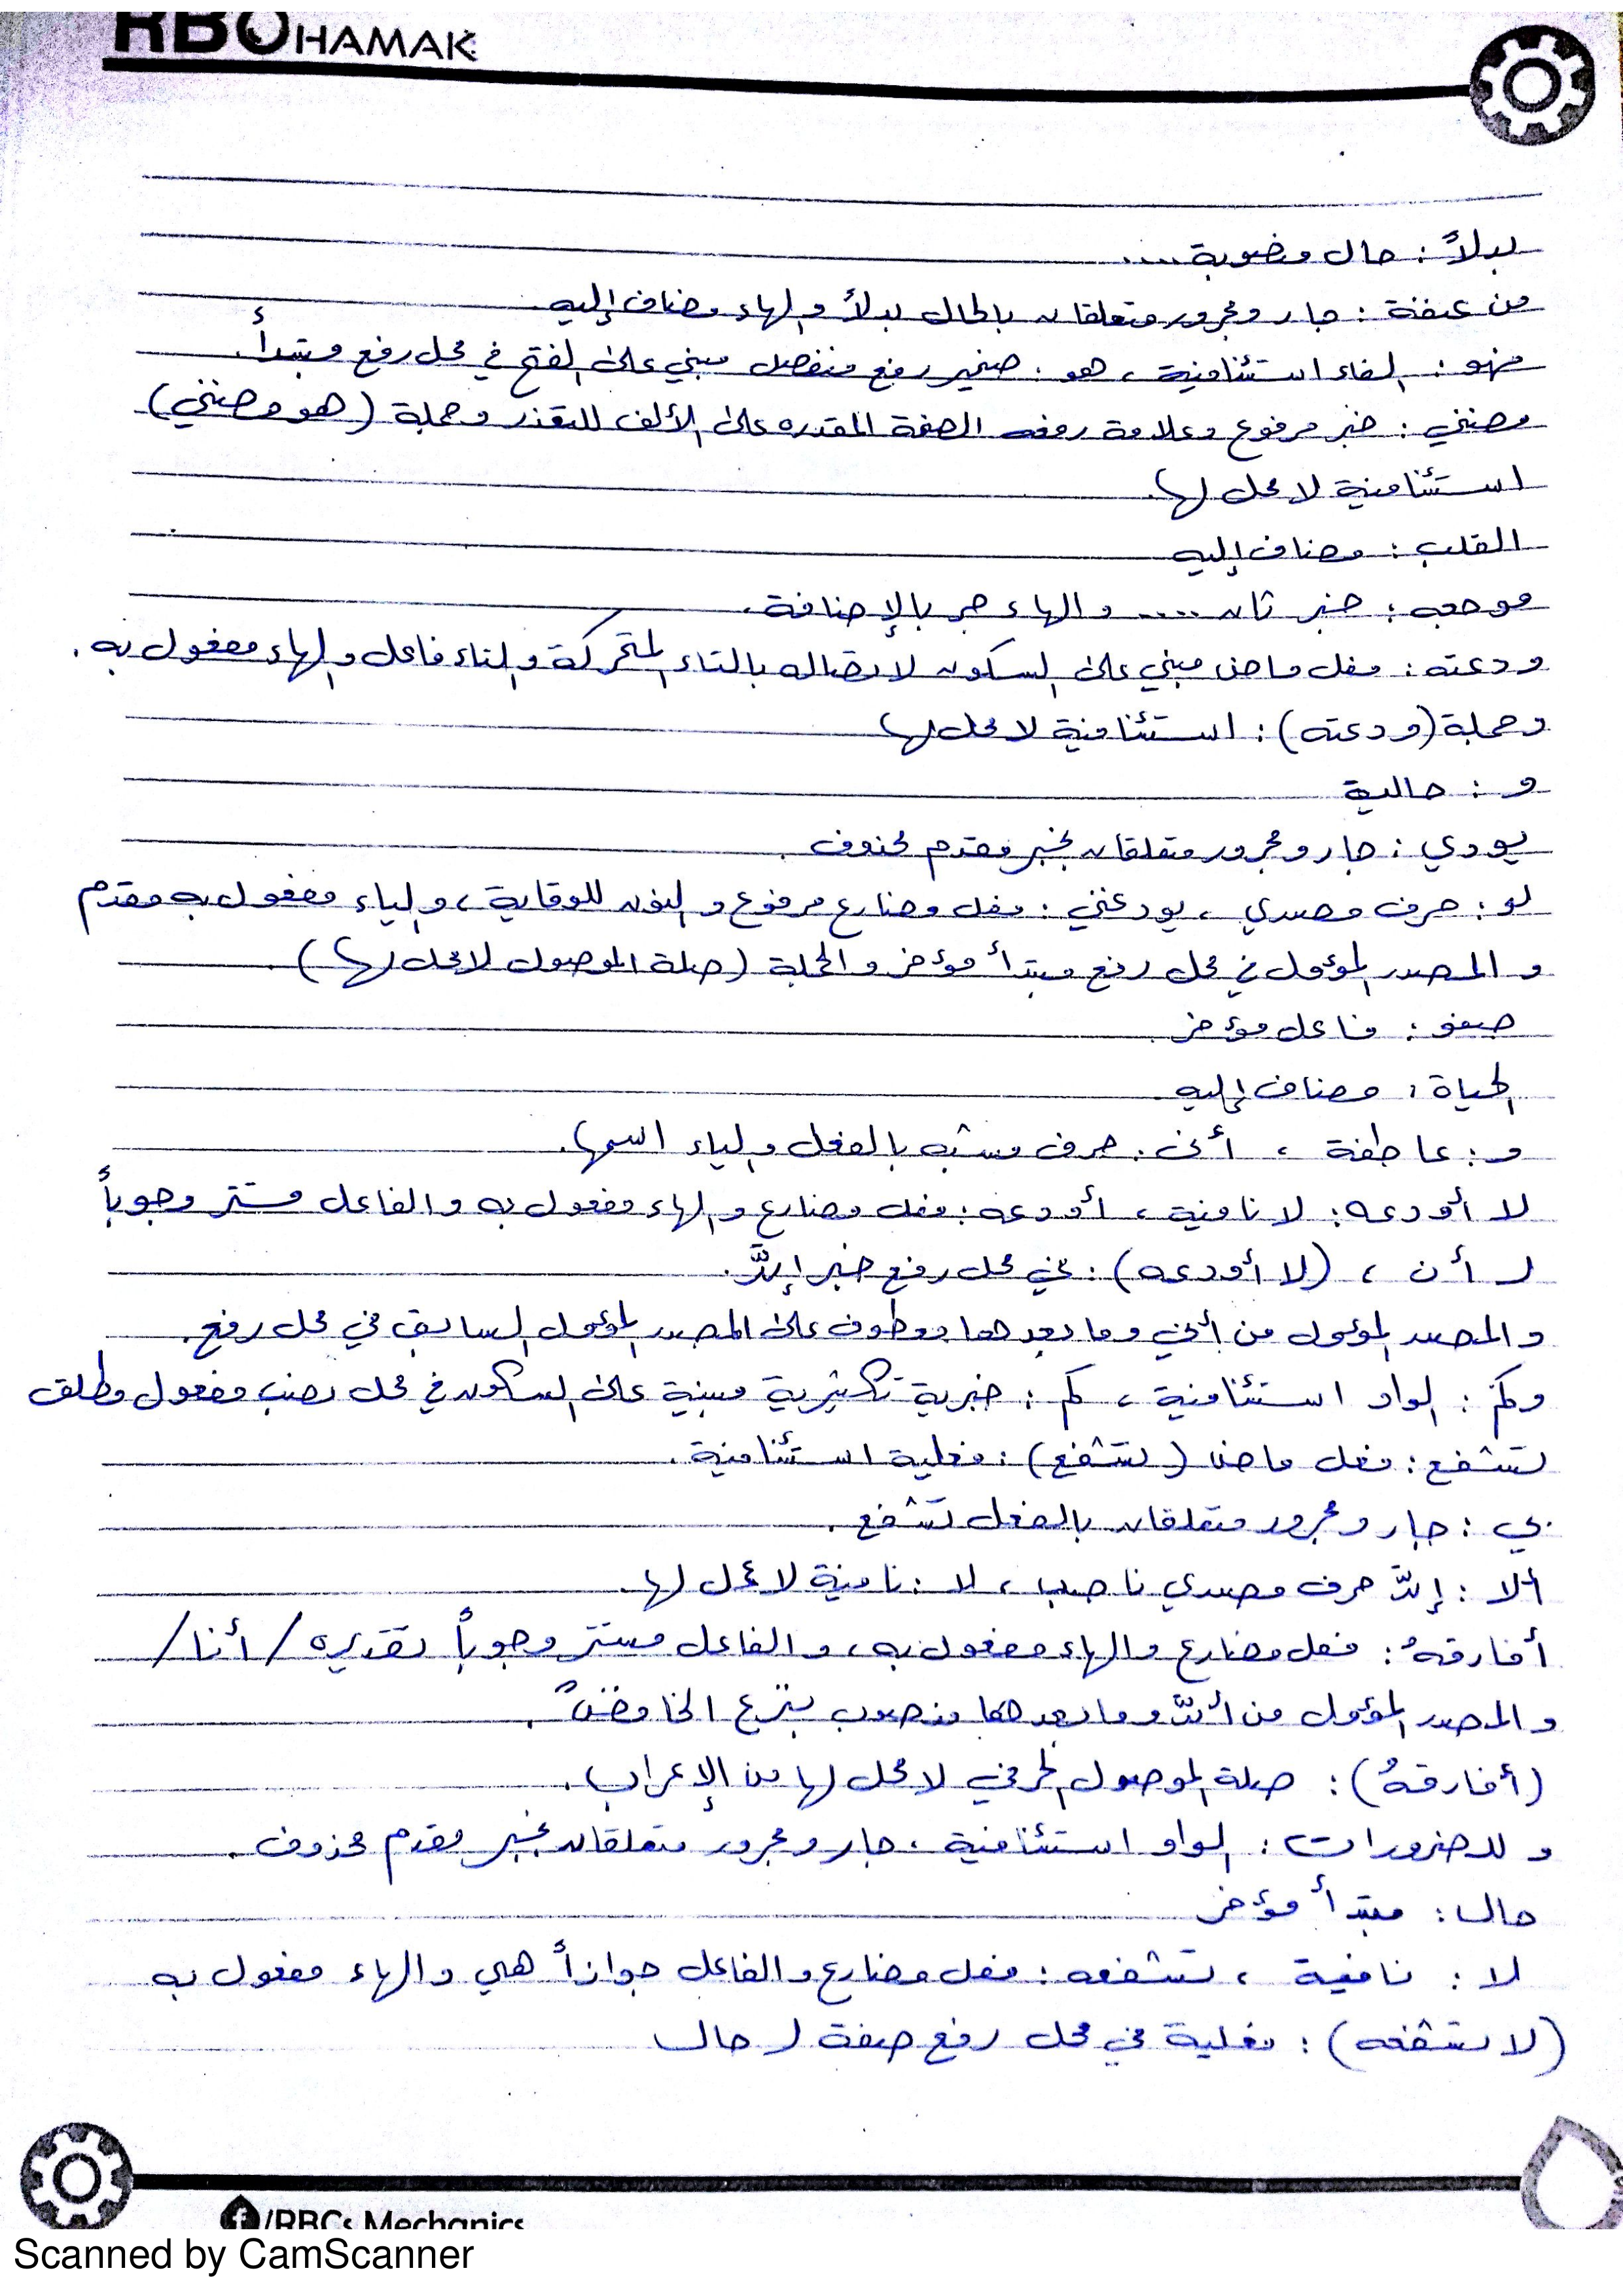 RBCHAMAK
بدلاً : حال منصوبة ....
من عنفه : جار ومجرور متعلقان بالحال بدلاً والهاء مضاف إليه
فهو : الفاء استئنافية ، هو : ضمير رفع منفصل مبني على الفتح في محل رفع مبتدأ.
مضنى : خبر مرفوع وعلامة رفعه الضمة المقدره على الألف للتعذر وجملة (هو مضنى)
استئنافية لا محل لها.
القلب : مضاف إليه
موجعه : خبر ثان .... والهاء جر بالإضافة.
ودعته : فعل ماض مبني على السكون لاتصاله بالتاء المتحركة والتاء فاعل والهاء مفعول به .
وجملة (ودعته) : استئنافية لا محل لها
و : حالية
بودي : جار ومجرور متعلقان بخبر مقدم محذوف .
لو : حرف مصدري ، يودعني : فعل مضارع مرفوع والنون للوقاية ، والياء مفعول به مقدم
والمصدر المؤول في محل رفع مبتدأ مؤخر والجملة (صلة الموصول لا محل لها) .
صفو : فاعل مؤخر
الحياة : مضاف إليه
و : عاطفة ، أني : حرف مشبه بالفعل والياء اسمها.
لا أودعه : لا نافية ، أودعه : فعل مضارع والهاء مفعول به والفاعل مستتر وجوباً
لـ أن ، (لا أودعه) : في محل رفع خبر إنَّ.
والمصدر المؤول من أني وما بعدها معطوف على المصدر المؤول السابق في محل رفع.
وكم : الواو استئنافية ، كم : خبرية تكثيرية مبنية على السكون في محل نصب مفعول مطلق
تشفع : فعل ماض (تشفع) : فعلية استئنافية .
بي : جار ومجرور متعلقان بالفعل تشفع .
ألا : إنَّ حرف مصدري ناصب ، لا : نافية لا عمل لها.
أفارقهُ : فعل مضارع والهاء مفعول به ، والفاعل مستتر وجوباً تقديره /أنا/
والمصدر المؤول من أنَّ وما بعدها منصوب بنزع الخافض .
(أفارقهُ) : صلة الموصول الحرفي لا محل لها من الإعراب .
وللضرورات : الواو استئنافية ، جار ومجرور متعلقان بخبر مقدم محذوف .
حال : مبتدأ مؤخر
لا : نافية ، تشفعه : فعل مضارع والفاعل جوازاً هي والهاء مفعول به
(لا تشفعه) : فعلية في محل رفع صفة لـ حال
/RBCs Mechanics
Scanned by CamScanner